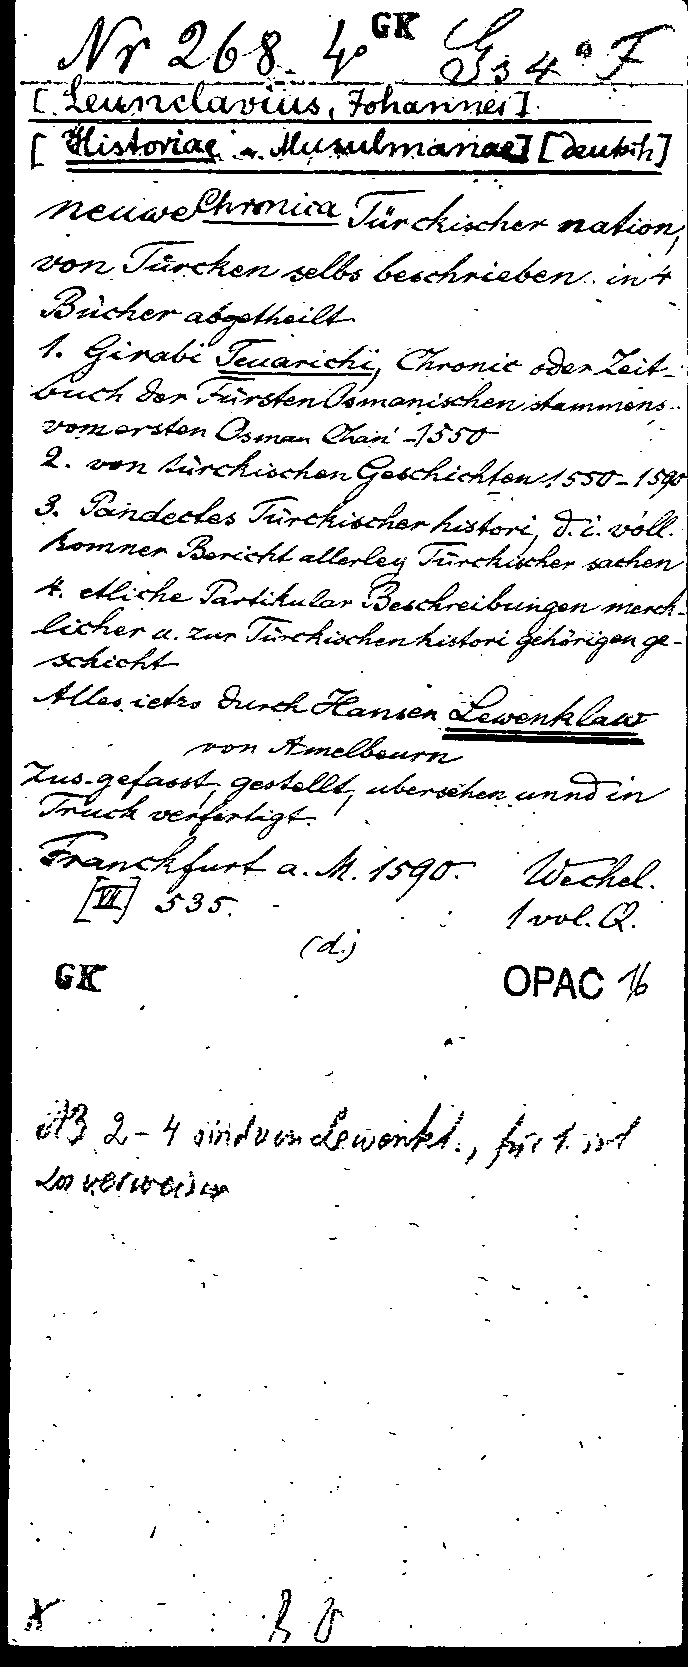 Nr 268. 4° GK Gs 4° F
[Leunclavius, Johannes]
[Historiae Musulmanae] [deutsch]
neuwe Chronica Türckischer nation,
von Türcken selbs beschrieben in 4
Bücher abgetheilt
1. Girabi Teuarichi, Chronic oder Zeit-
buch der Fürsten Osmanischen stammens
vom ersten Osman Chan -1550
2. von türckischen Geschichten 1550-1590
3. Pandectes Türckischer histori, d.i. voll
komner Bericht allerley Türckischer sachen
4. etliche Partikular Beschreibungen merck-
licher u. zur Türckischen histori gehörigen ge-
schicht
Alles ietzo durch Hansen Lewenklaw
von Amelbeurn
zus. gefasst, gestellt, ubersehen unnd in
Truck verfertigt.
Franckfurt a. M. 1590. Wechel.
[VI] 535. 1 vol. Q.
(d.)
GK OPAC 16
2-4 sind von Lewenkl., für 1. ist
zu verweisen